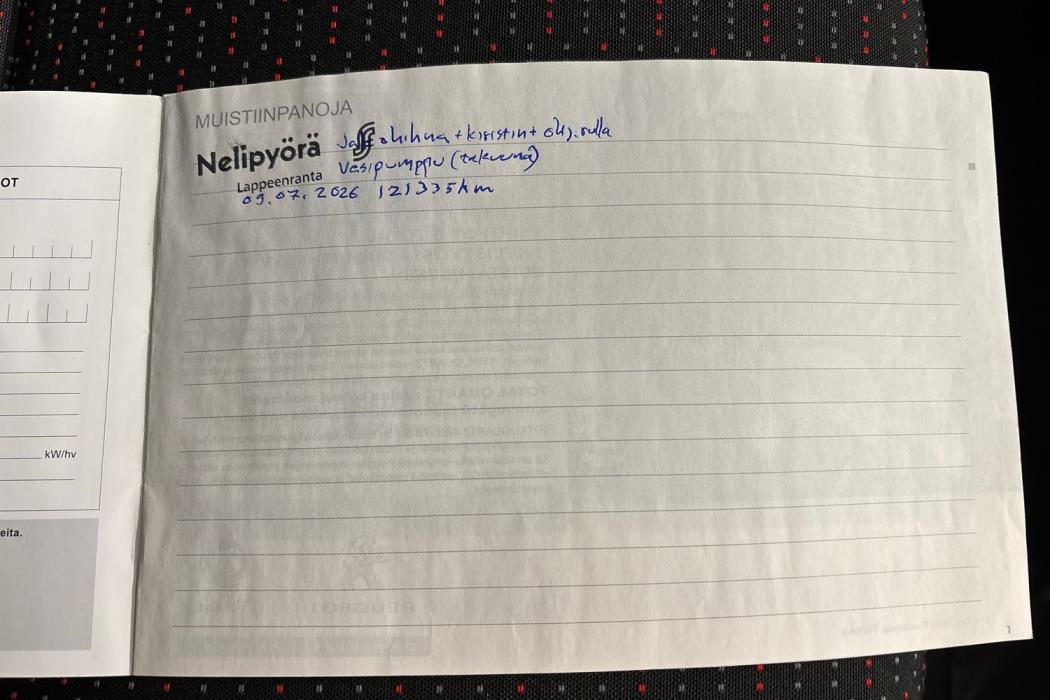 OT
kW/hv
eita.
MUISTIINPANOJA
Nelipyörä
Lappeenranta
Jakohihna + kiristin + ohj. rulla
Vesipumppu (takuuna)
09.07.2026 121335km
1